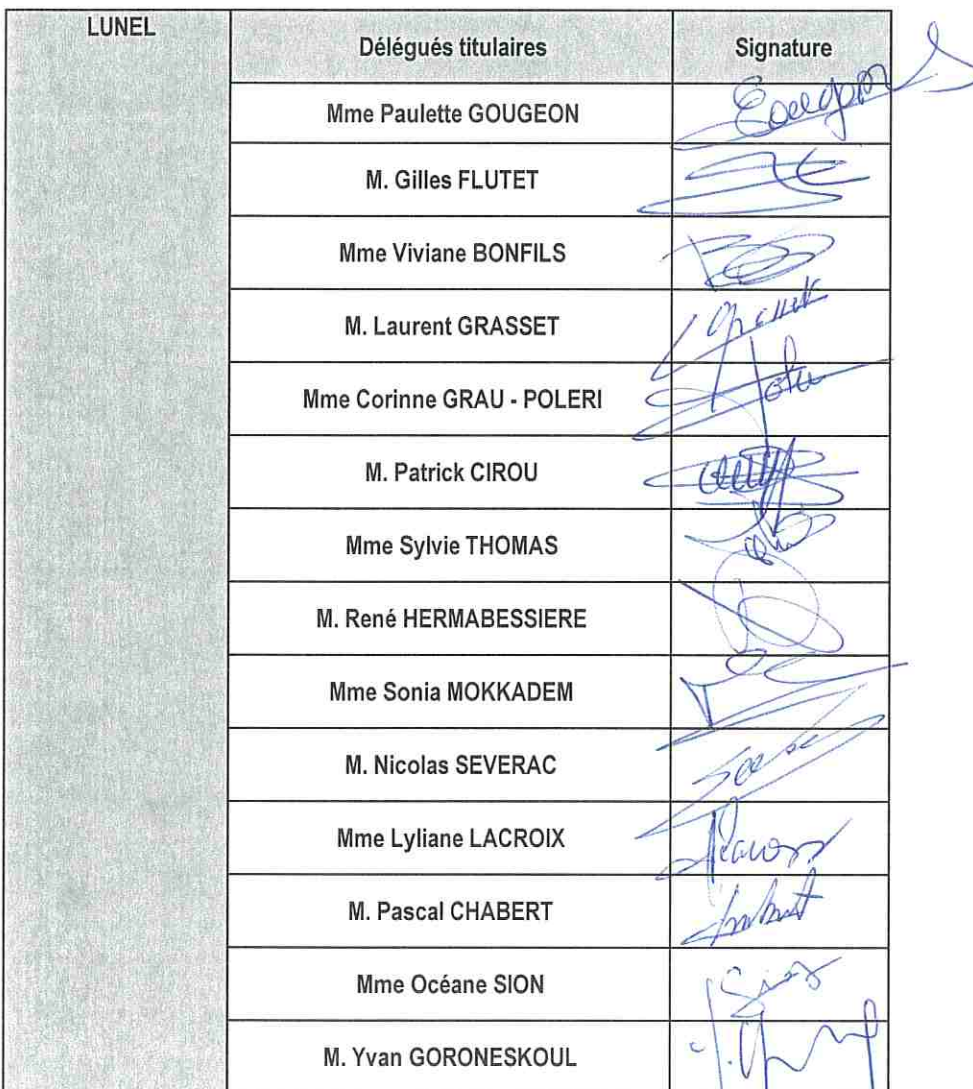 LUNEL
Délégués titulaires
Signature
Mme Paulette GOUGEON
Gougeon
M. Gilles FLUTET
Mme Viviane BONFILS
M. Laurent GRASSET
Mme Corinne GRAU - POLERI
M. Patrick CIROU
Mme Sylvie THOMAS
M. René HERMABESSIERE
Mme Sonia MOKKADEM
M. Nicolas SEVERAC
Mme Lyliane LACROIX
M. Pascal CHABERT
Mme Océane SION
M. Yvan GORONESKOUL